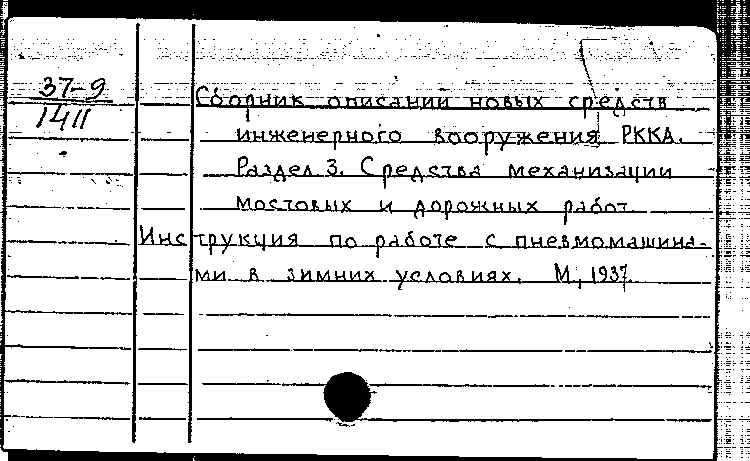 37-9
1411
Сборник описаний новых средств
инженерного вооружения РККА.
Раздел 3. Средства механизации
мостовых и дорожных работ
Инструкция по работе с пневмомашина-
ми в зимних условиях. М., 1937.